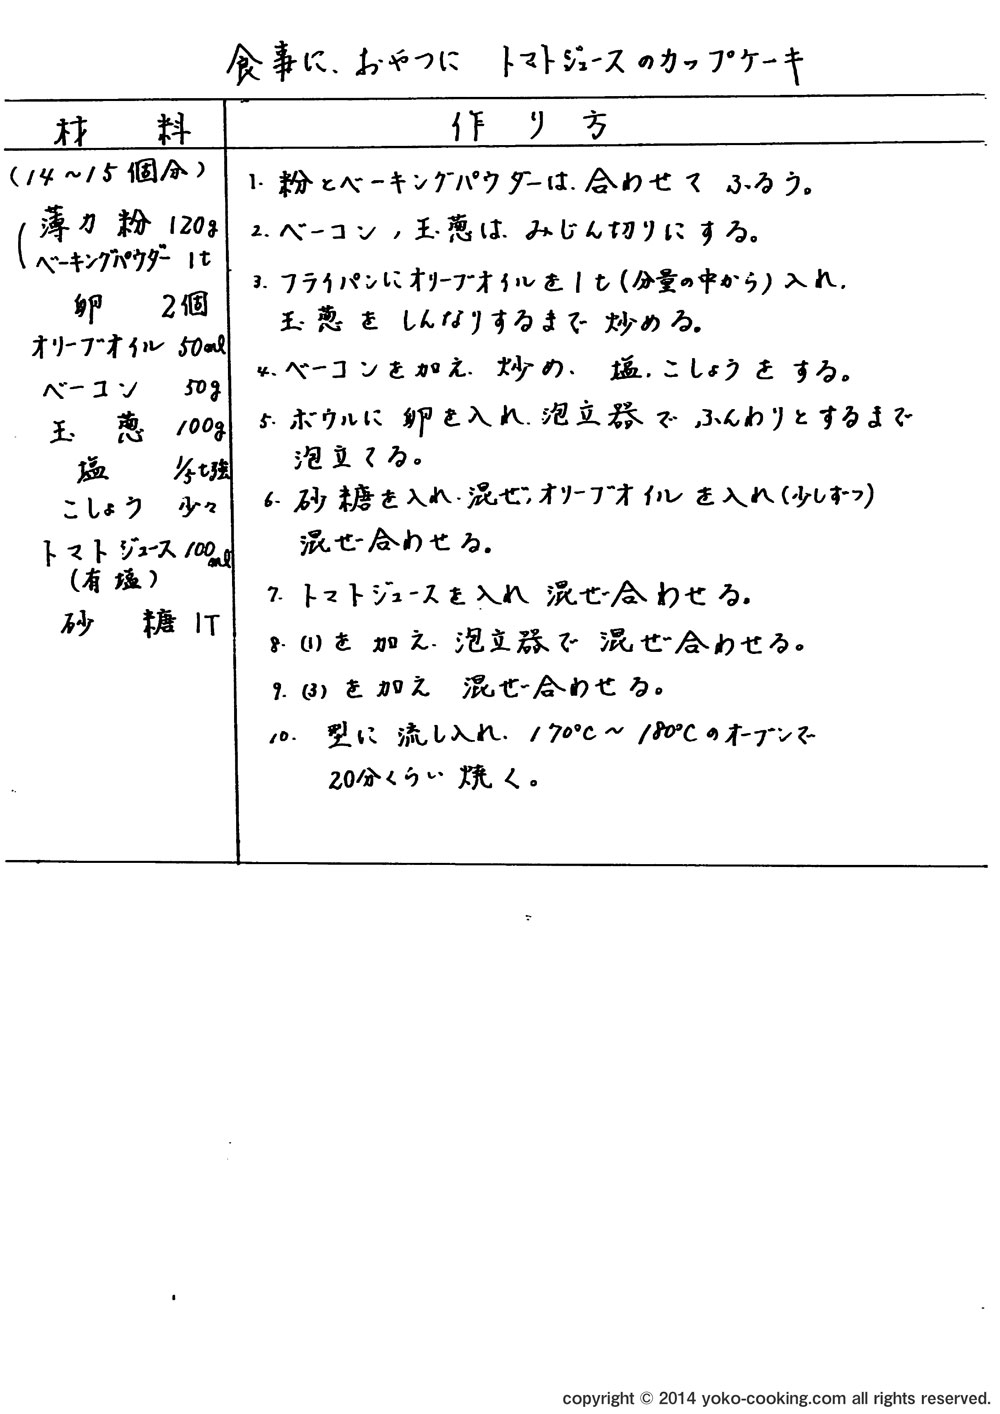 食事に、おやつに トマトジュースのカップケーキ
材料
作り方
(14~15個分)
薄力粉 120g
ベーキングパウダー 1t
卵 2個
オリーブオイル 50ml
ベーコン 50g
玉葱 100g
塩 1/5t強
こしょう 少々
トマトジュース 100ml
(有塩)
砂糖 1T
1. 粉とベーキングパウダーは、合わせて ふるう。
2. ベーコン、玉葱は、みじん切りにする。
3. フライパンにオリーブオイルを1t(分量の中から)入れ、
玉葱を しんなりするまで 炒める。
4. ベーコンを加え、炒め、塩、こしょうをする。
5. ボウルに 卵を入れ、泡立器で ふんわりとするまで
泡立てる。
6. 砂糖を入れ、混ぜ、オリーブオイルを入れ(少しずつ)
混ぜ合わせる。
7. トマトジュースを入れ 混ぜ合わせる。
8. (1)を加え、泡立器で 混ぜ合わせる。
9. (3)を加え 混ぜ合わせる。
10. 型に 流し入れ、170℃~180℃のオーブンで
20分くらい 焼く。
copyright © 2014 yoko-cooking.com all rights reserved.